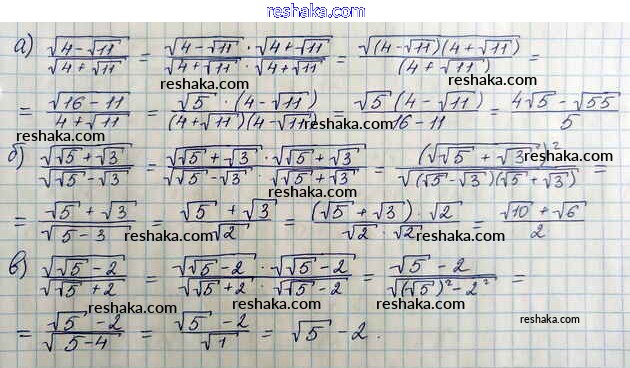 reshaka.com
а) √(4-√11) / √(4+√11) = √(4-√11) · √(4+√11) / √(4+√11) · √(4+√11) = √((4-√11)(4+√11)) / (4+√11) =
reshaka.com reshaka.com
= √(16-11) / 4+√11 = √5 · (4-√11) / (4+√11)(4-√11) = √5 (4-√11) / 16-11 = 4√5 - √55 / 5
reshaka.com reshaka.com
б) √(√5+√3) / √(√5-√3) = √(√5+√3) · √(√5+√3) / √(√5-√3) · √(√5+√3) = (√(√5+√3))² / √((√5-√3)(√5+√3)) =
reshaka.com reshaka.com
= √5+√3 / √(5-3) = √5+√3 / √2 = (√5+√3) · √2 / √2 · √2 = √10+√6 / 2
reshaka.com reshaka.com
в) √(√5-2) / √(√5+2) = √(√5-2) · √(√5-2) / √(√5+2) · √(√5-2) = √5-2 / √((√5)²-2²) =
reshaka.com reshaka.com
= √5-2 / √(5-4) = √5-2 / √1 = √5-2.
reshaka.com reshaka.com